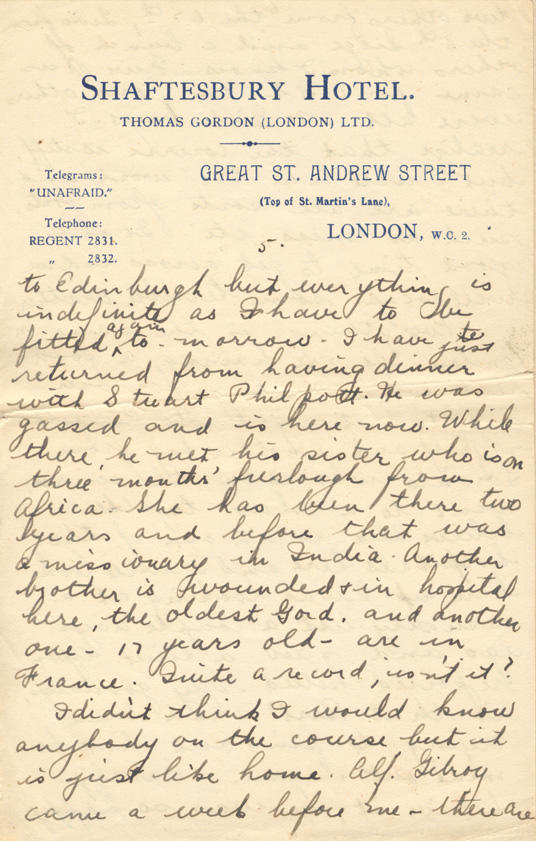 SHAFTESBURY HOTEL.
THOMAS GORDON (LONDON) LTD.
Telegrams:
"UNAFRAID."
Telephone:
REGENT 2831.
" 2832.
GREAT ST. ANDREW STREET
(Top of St. Martin's Lane),
LONDON, W.C. 2.
5.
to Edinburgh but everything is
indefinite as I have to be
fitted again to-morrow. I have just
returned from having dinner
with Stuart Philpott. He was
gassed and is here now. While
there, he met his sister who is on
three months' furlough from
Africa. She has been there two
years and before that was
a missionary in India. Another
brother is wounded & in hospital
here, the oldest Gord. and another
one - 17 years old - are in
France. Quite a record, isn't it?
I didn't think I would know
anybody on the course but it
is just like home. Alf. Gilroy
came a week before me - there are